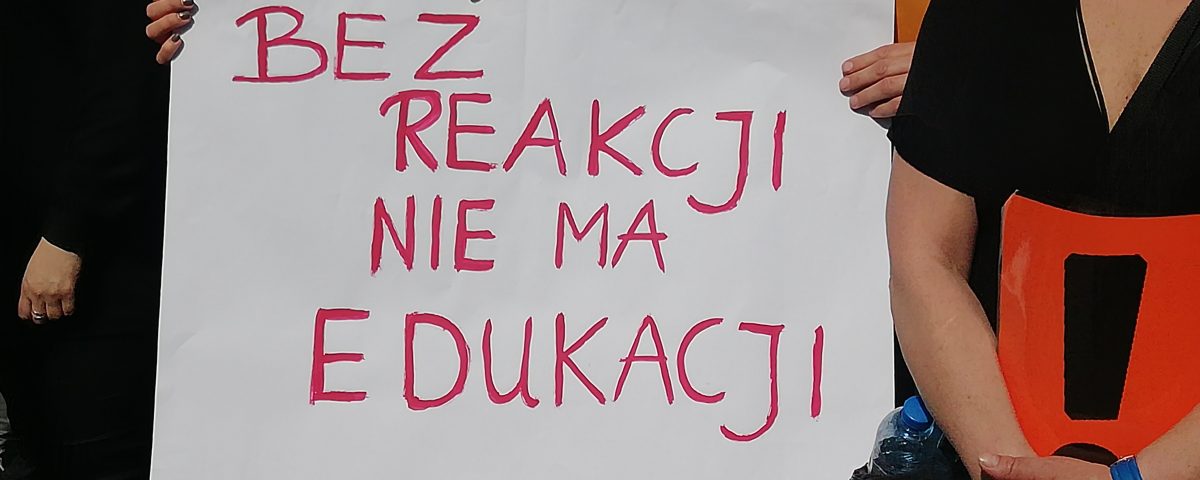 BEZ
REAKCJI
NIE MA
EDUKACJI
!